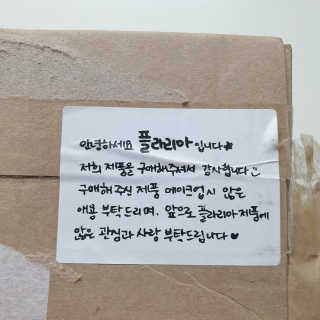 안녕하세요 플라리아입니다★
저희 제품을 구매해주셔서 감사합니다
구매해 주신 제품 메이크업 시 많은
애용 부탁드리며, 앞으로 플라리아제품에
많은 관심과 사랑 부탁드립니다♥